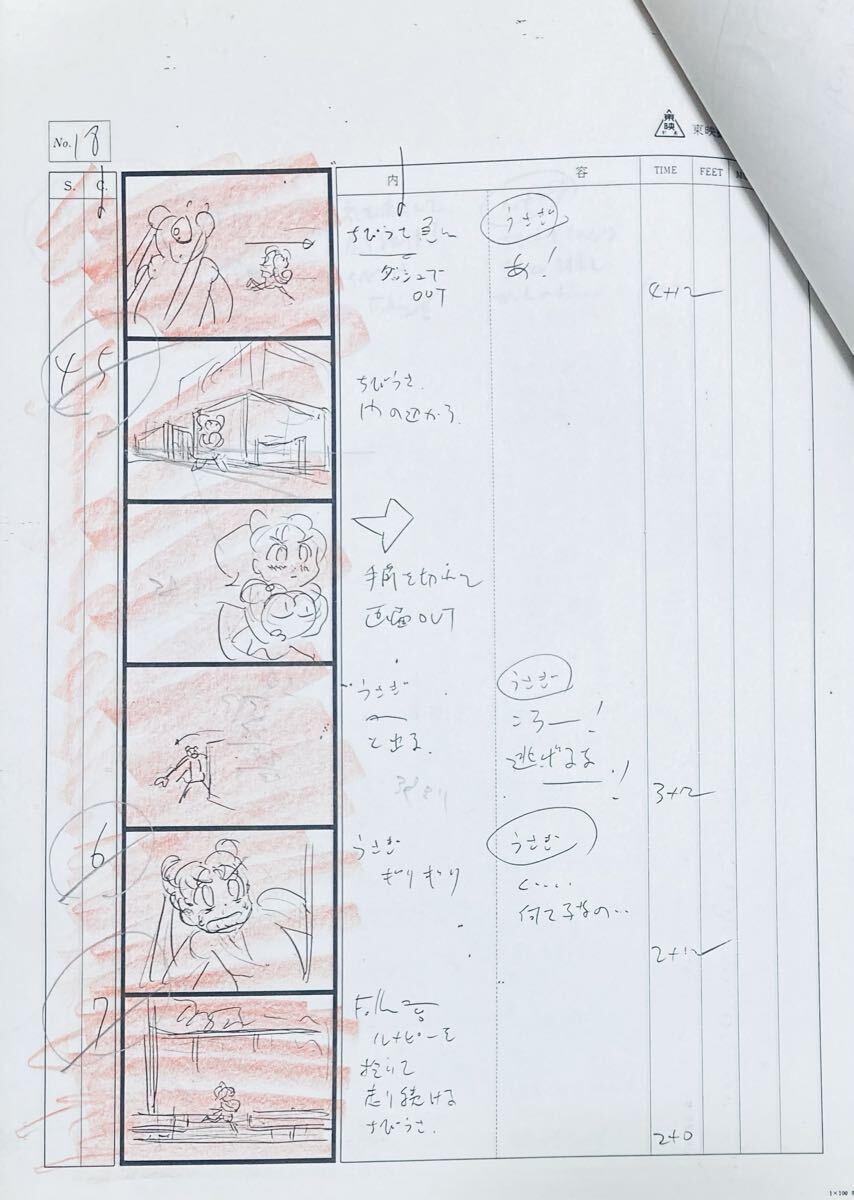 No. 18
東映
S. C. 内 容 TIME FEET
ちびうさ急に
ダッシュで
OUT
うさぎ
あ!
4+12
4 5
ちびうさ
内の辺から
手前を切って
画面OUT
うさぎ
と出る
うさぎ
こらー!
逃げるな!
3+12
6
うさぎ
ぎりぎり
うさぎ
く……
何て子なの…
2+12
7
Follow
ルナPボールを
走り続ける
ちびうさ
2+0